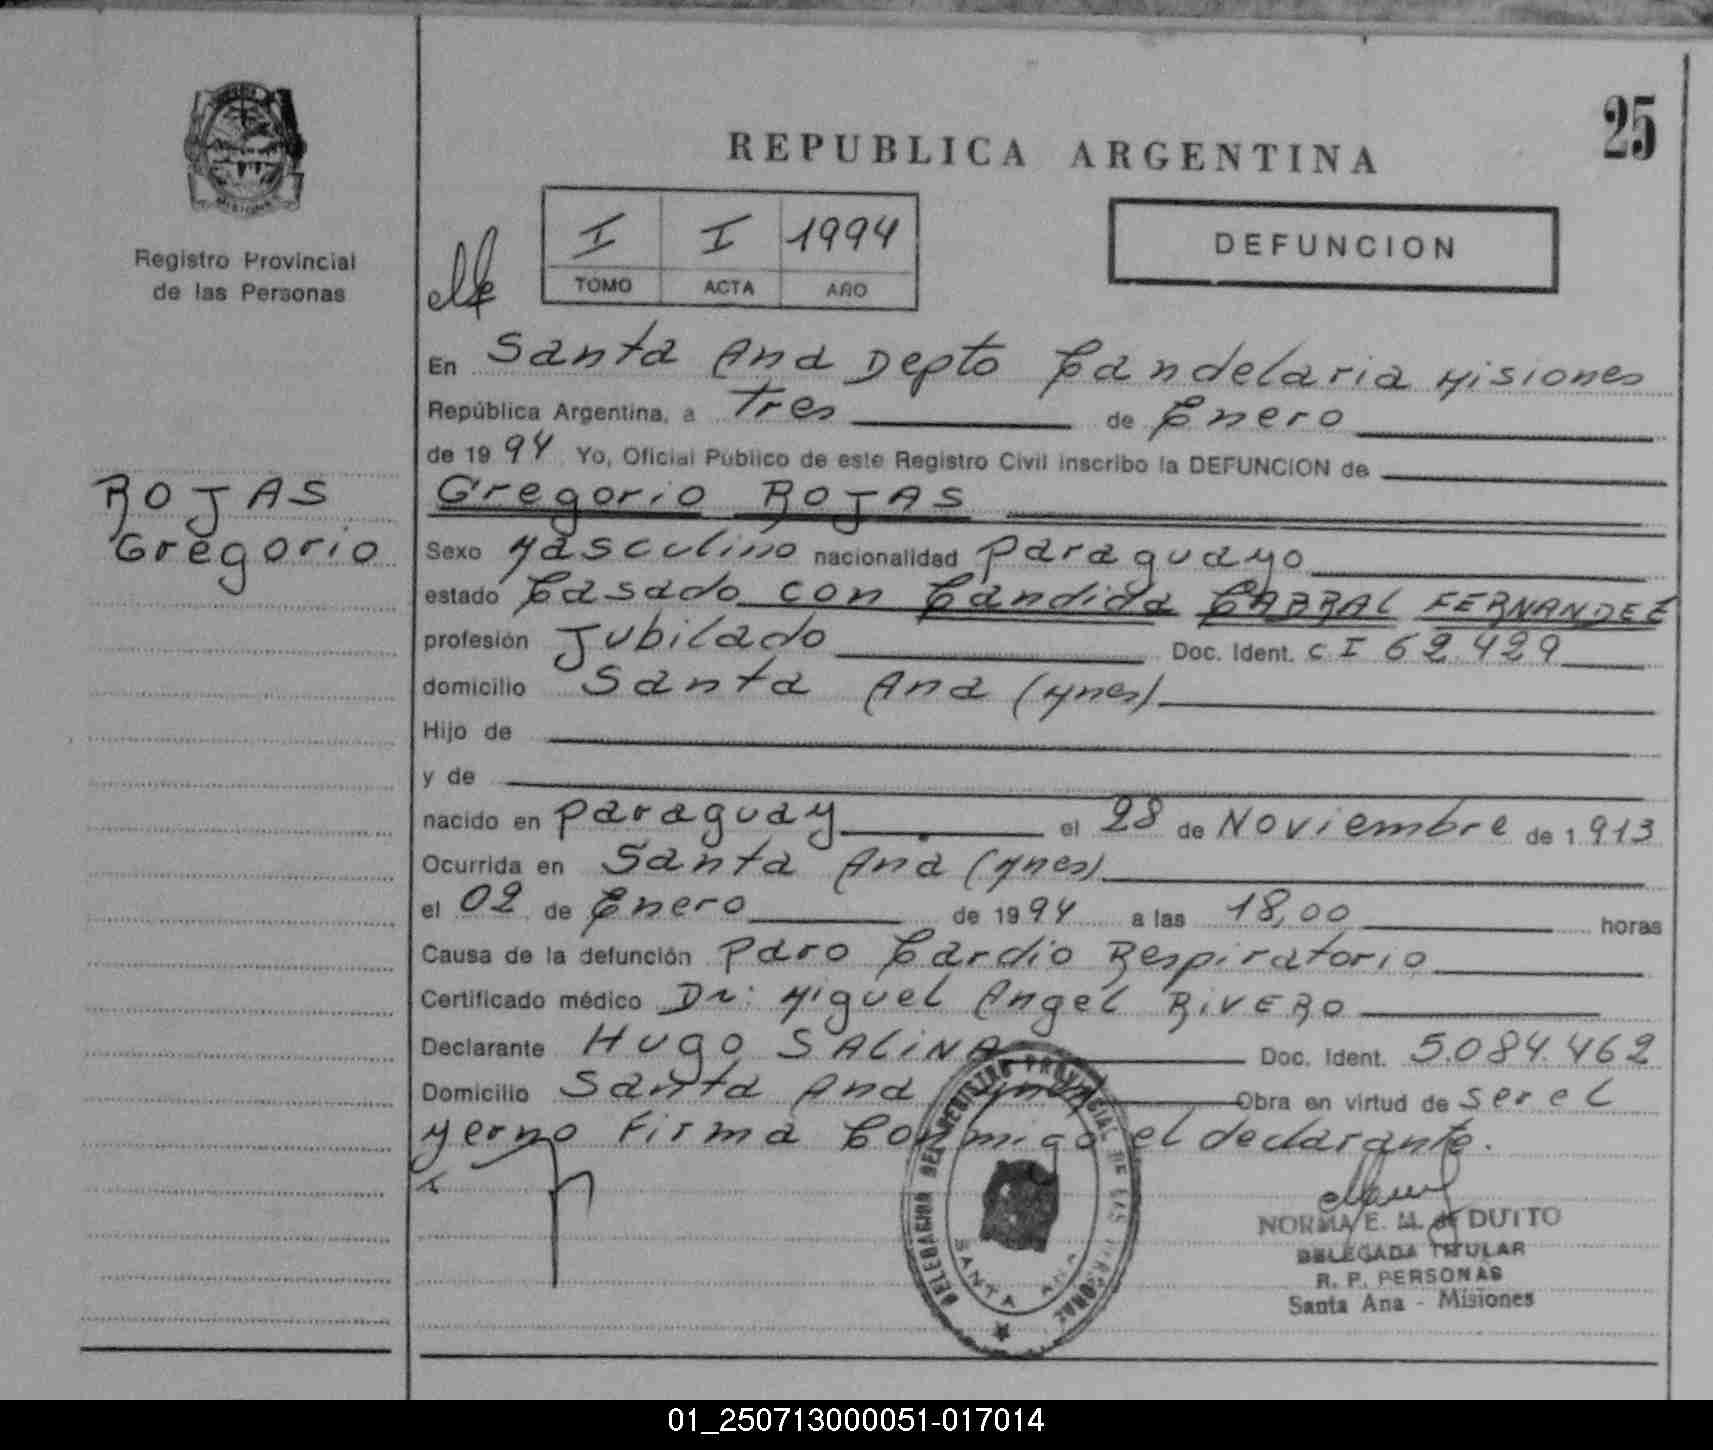 25
REPUBLICA ARGENTINA
MISIONES
Registro Provincial
de las Personas
I I 1994
TOMO ACTA AÑO
DEFUNCION
En Santa Ana Depto Candelaria Misiones
República Argentina, a Tres de Enero
de 1994 Yo, Oficial Público de este Registro Civil inscribo la DEFUNCION de
ROJAS
Gregorio
Gregorio ROJAS
Sexo Masculino nacionalidad Paraguayo
estado Casado con Candida CABRAL FERNANDEZ
profesión Jubilado Doc. Ident. C I 62.429
domicilio Santa Ana (Mnes)
Hijo de
y de
nacido en Paraguay el 28 de Noviembre de 1.913
Ocurrida en Santa Ana (Mnes)
el 02 de Enero de 1994 a las 18,00 horas
Causa de la defunción Paro Cardio Respiratorio
Certificado médico Dr: Miguel Angel RIVERO
Declarante Hugo SALINA Doc. Ident. 5.084.462
Domicilio Santa Ana Mnes Obra en virtud de ser el
yerno Firma Conmigo el declarante.
DELEGACION DEL REGISTRO PROVINCIAL DE LAS PERSONAS
SANTA ANA
NORMA E. M. de DUTTO
DELEGADA TITULAR
R. P. PERSONAS
Santa Ana - Misiones
01_250713000051-017014